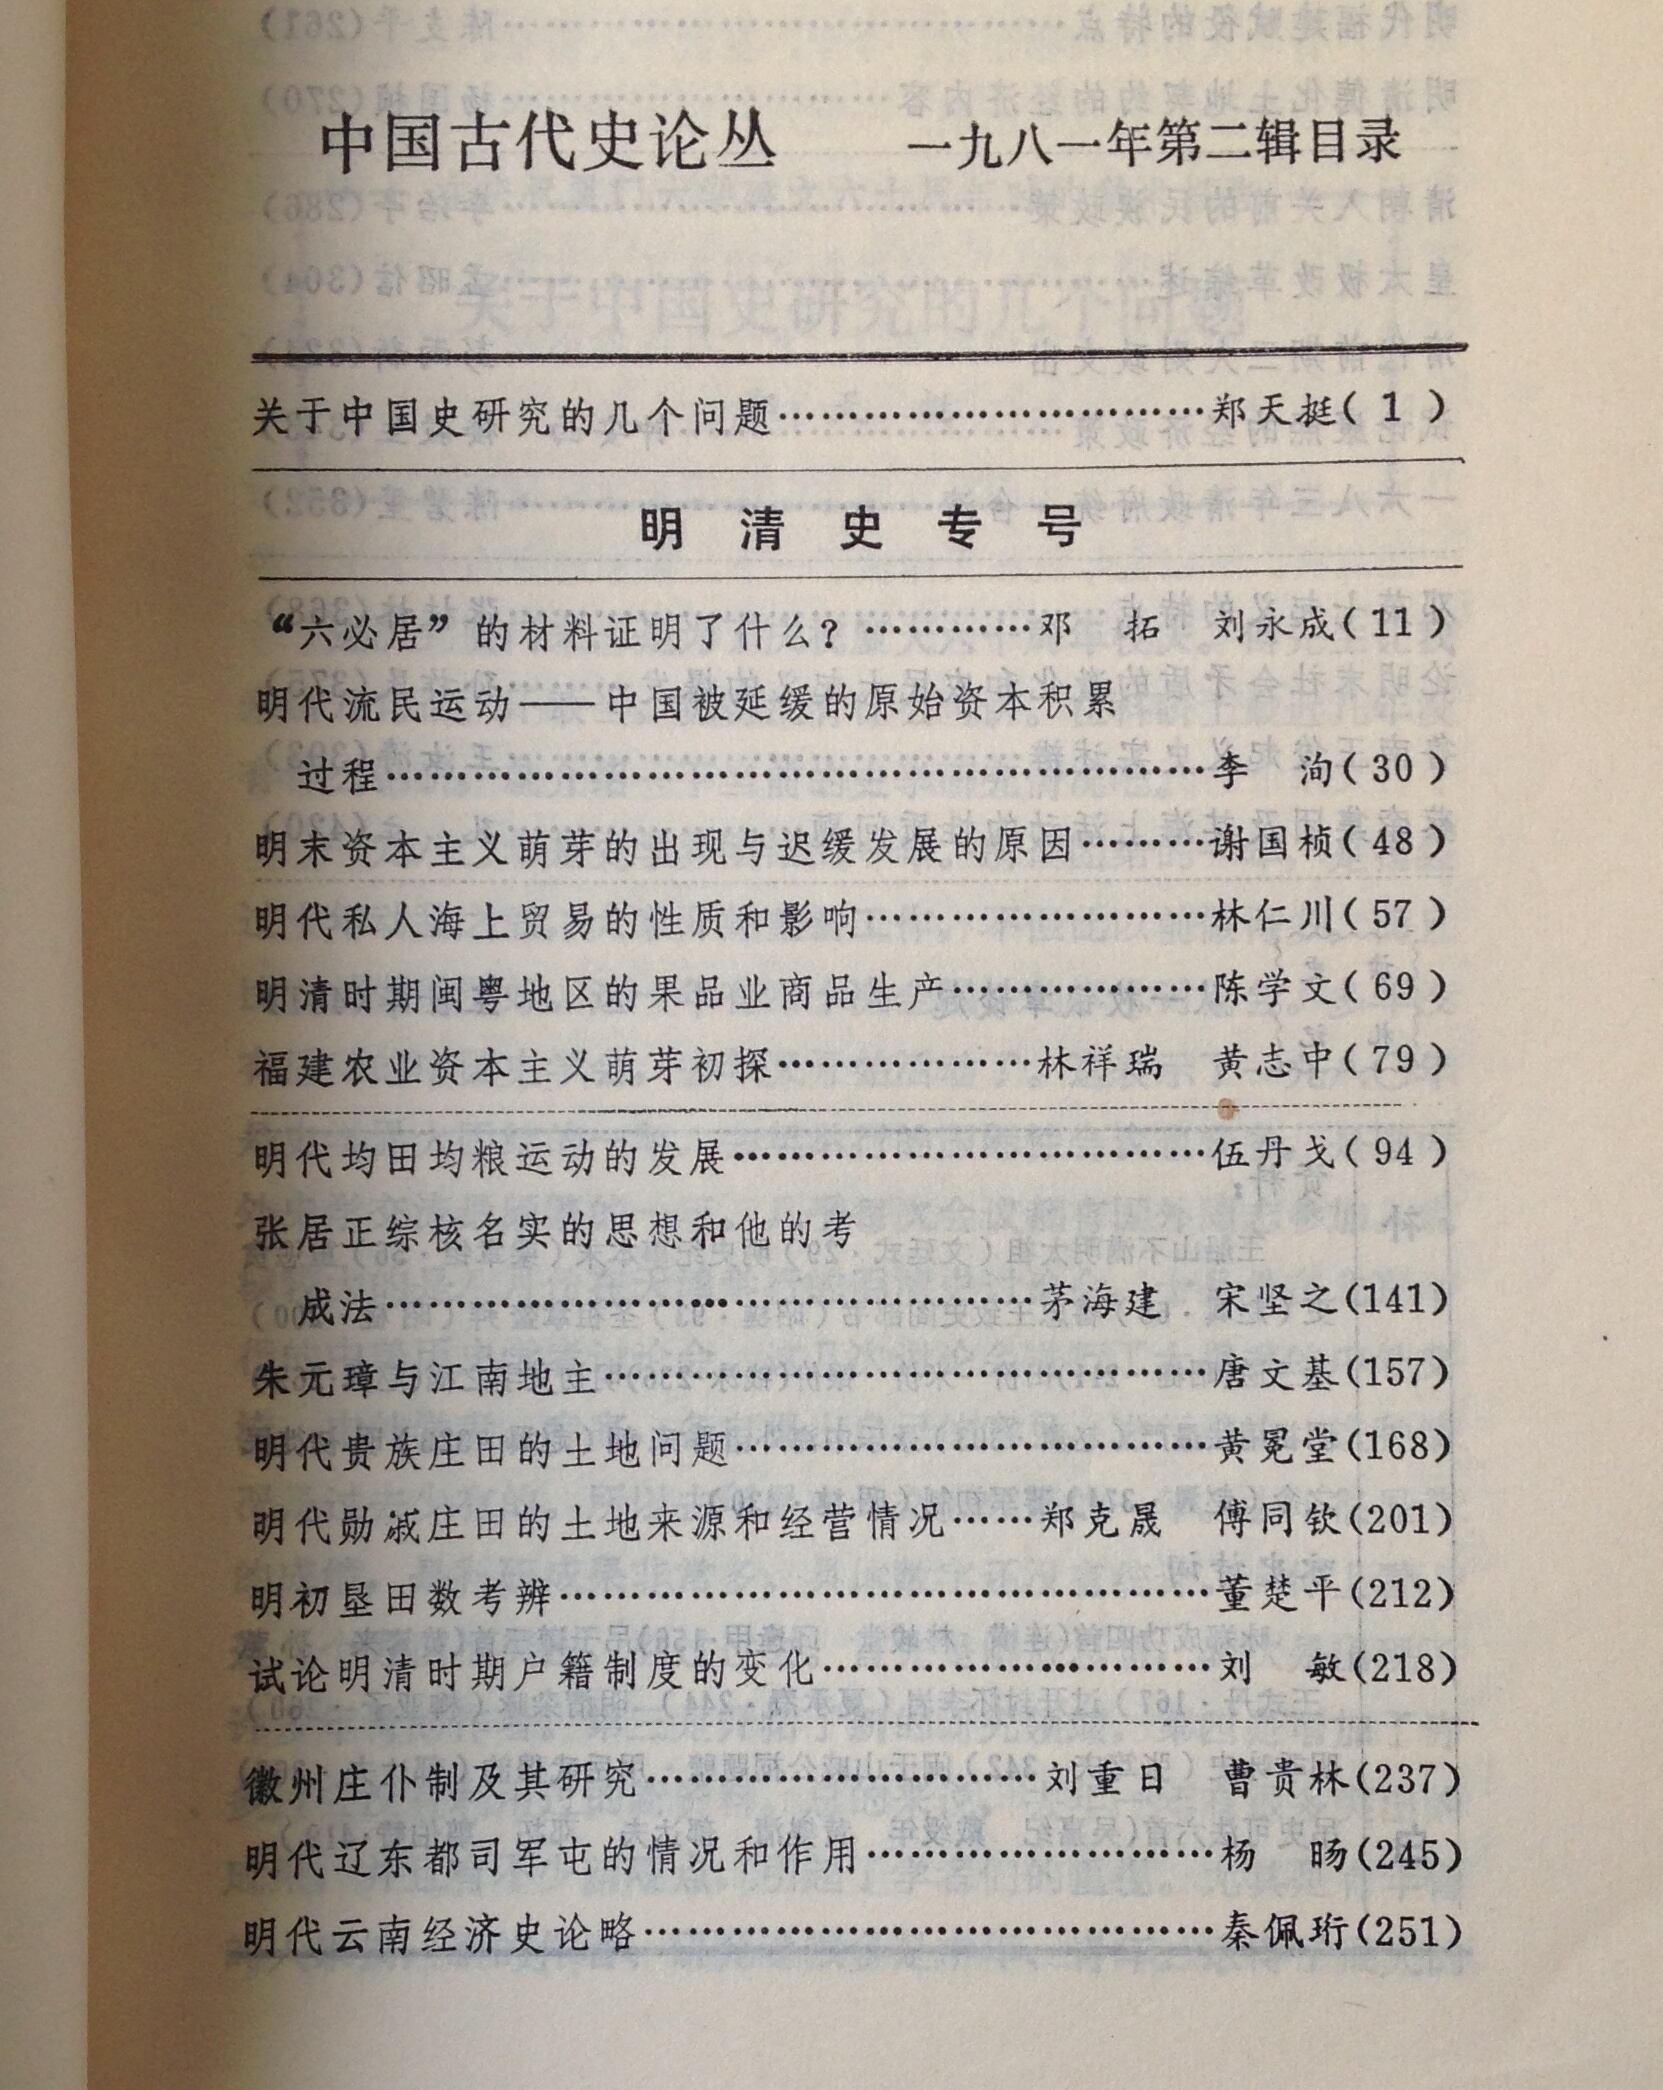 中国古代史论丛 一九八一年第二辑目录
关于中国史研究的几个问题…………………………郑天挺(1)
明清史专号
“六必居”的材料证明了什么?…………邓 拓 刘永成(11)
明代流民运动——中国被延缓的原始资本积累
过程……………………………………………………李 洵(30)
明末资本主义萌芽的出现与迟缓发展的原因………谢国桢(48)
明代私人海上贸易的性质和影响……………………林仁川(57)
明清时期闽粤地区的果品业商品生产………………陈学文(69)
福建农业资本主义萌芽初探………………林祥瑞 黄志中(79)
明代均田均粮运动的发展……………………………伍丹戈(94)
张居正综核名实的思想和他的考
成法…………………………………………茅海建 宋坚之(141)
朱元璋与江南地主………………………………………唐文基(157)
明代贵族庄田的土地问题……………………………黄冕堂(168)
明代勋戚庄田的土地来源和经营情况……郑克晟 傅同钦(201)
明初垦田数考辨…………………………………………董楚平(212)
试论明清时期户籍制度的变化………………………刘 敏(218)
徽州庄仆制及其研究………………………刘重日 曹贵林(237)
明代辽东都司军屯的情况和作用……………………杨 旸(245)
明代云南经济史论略……………………………………秦佩珩(251)